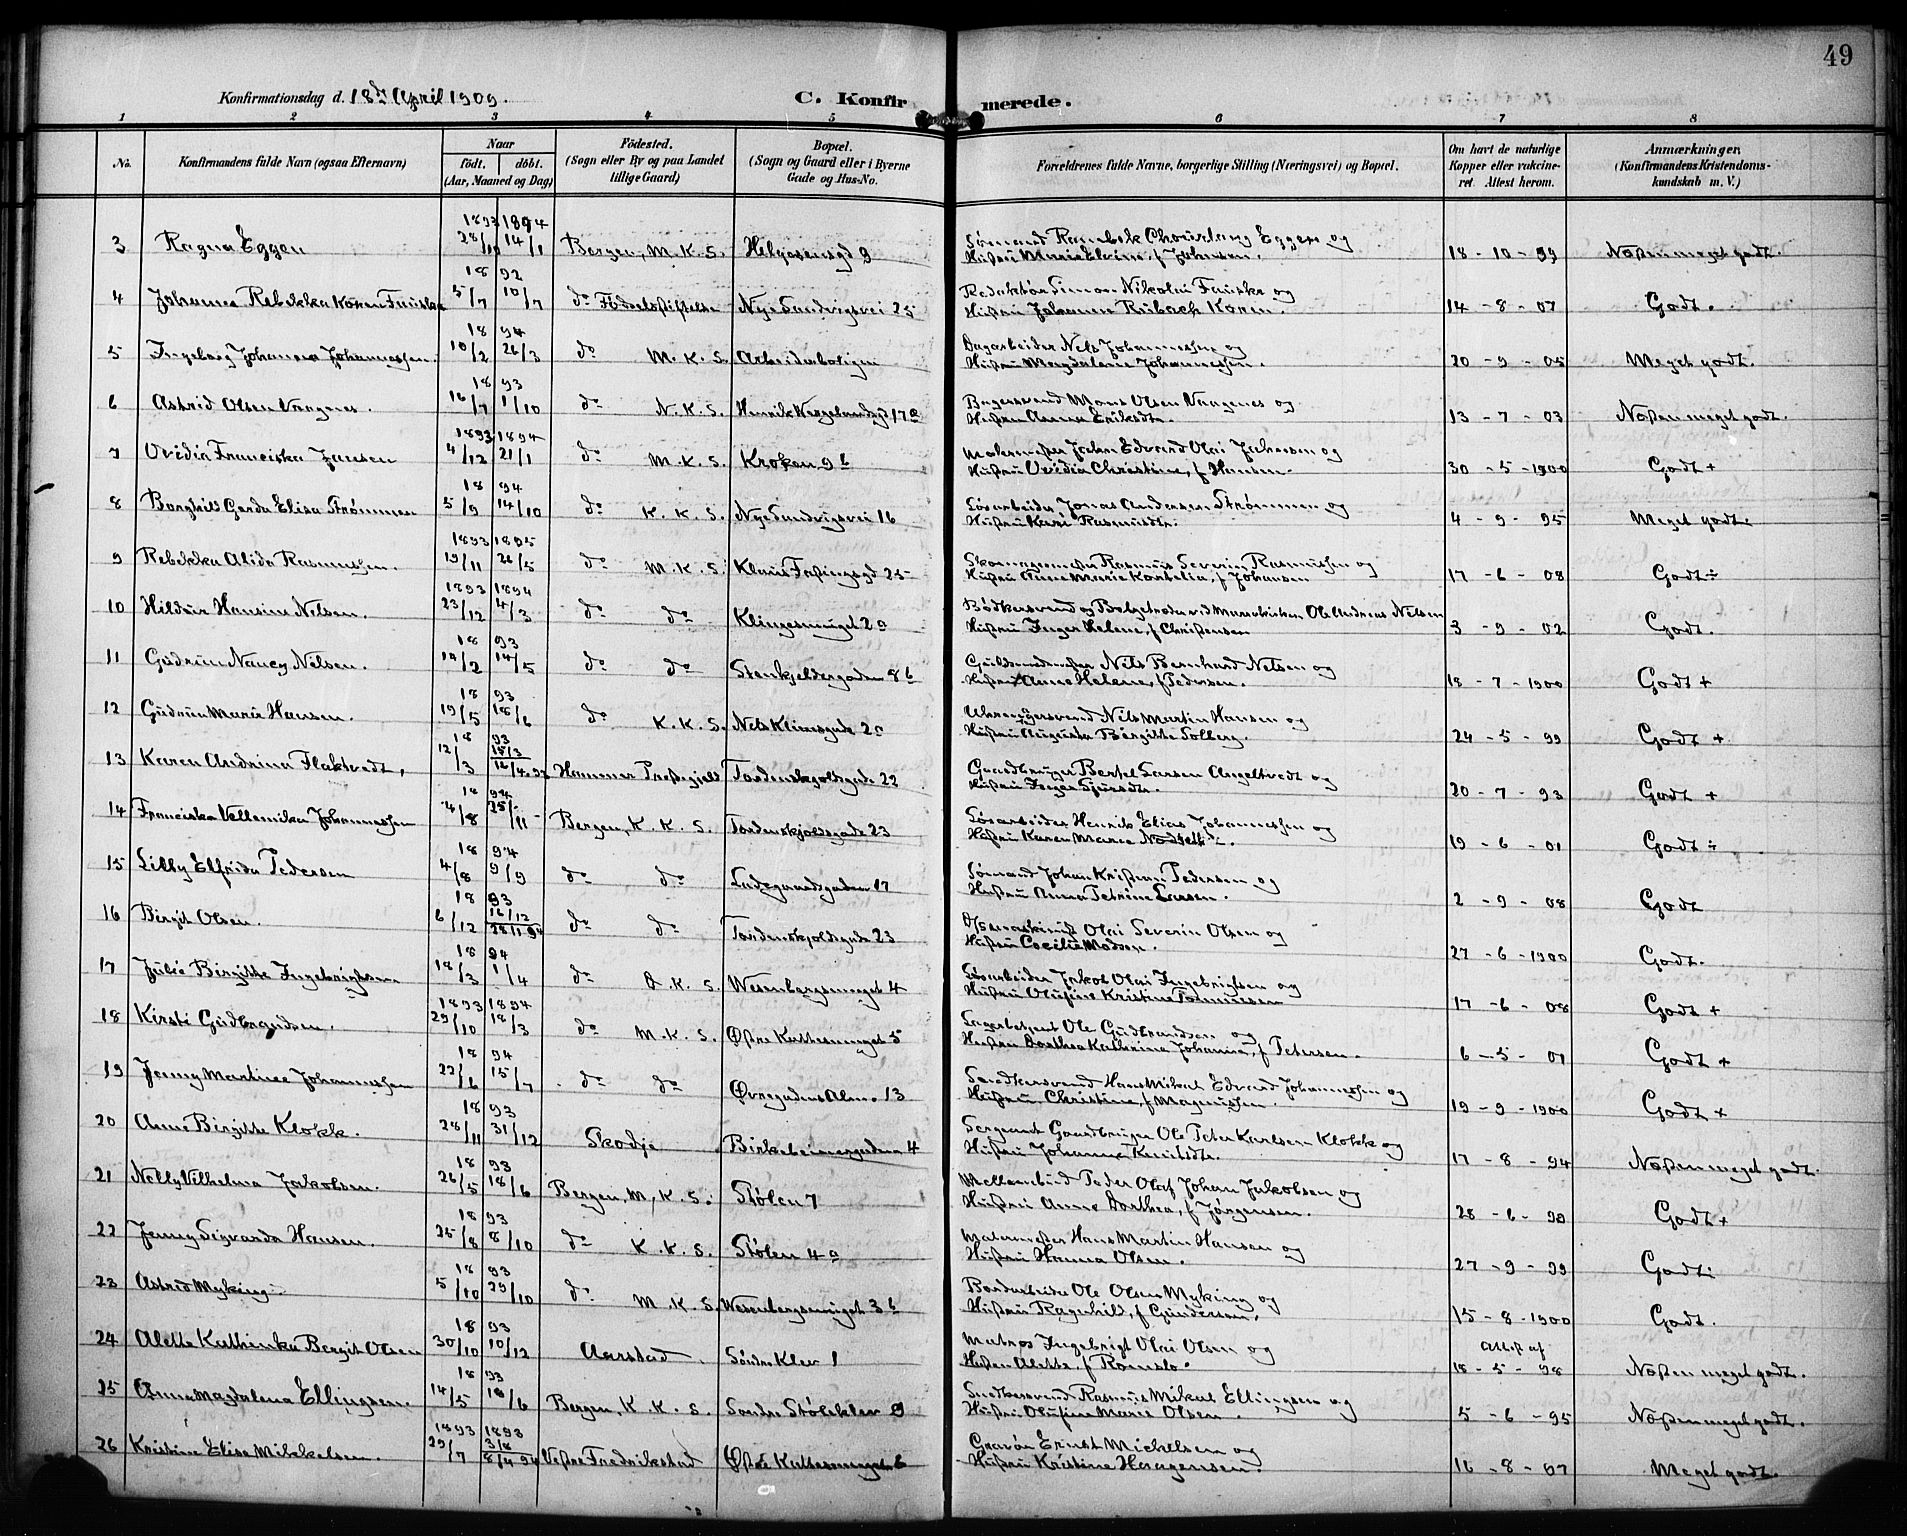 49
Konfirmationsdag d. 18de April 1909.
C. Konfirmerede.
1 2 3 4 5 6 7 8
No. Konfirmandens fulde Navn (ogsaa Efternavn) Naar født. døbt. (Aar, Maaned og Dag) Fødested. (Sogn eller By og paa Landet tillige Gaard) Bopæl. (Sogn og Gaard eller i Byerne Gade og Hus-No. Forældrenes fulde Navne, borgerlige Stilling (Næringsvei) og Bopæl. Om havt de naturlige Kopper eller vakcineret. Attest herom. Anmærkninger. (Konfirmandens Kristendomskundskab m. V.)
3 Ragna Eggen 1893 28/10 1894 14/1 Bergen, M. K. S. Helgesensgd 9 Sømand Eggen og Hustru Marie Elvine, f Johnsen. 18-10-99 Næsten meget godt.
4 Johanna Rebekka Koren Fauske 18 92 5/7 10/7 do Fødselsstiftelse Nye Sandvigsvei 25 Redaktør Simon Nikolai Fauske og Hustru Johanna Rubach Koren. 14-8-07 Godt.
5 Ingeborg Johanna Johannessen. 18 94 10/2 26/3 do M. K. S. Arbeiderboligen Dagarbeider Nels Johannessen og Hustru Magdalene Johannessen. 20-9-05 Meget godt.
6 Astrid Olsen Vangnes. 18 93 16/7 1/10 do N. K. S. Henrik Wergelandsgd 17a Bagersvend Mons Olsen Vangnes og Hustru Anna Eriksdtr. 13-7-03 Næsten meget godt.
7 Ovidia Franciska Jansen 1893 4/12 1894 21/1 do M. K. S. Kroken 9b Malermester Johan Edvard Olai Jansen og Hustru Ovidia Christine, f Hansen. 30-5-1900 Godt +
8 Borghild Gerda Elisa Strømmen 18 94 5/9 14/10 do K. K. S. Nye Sandvigsvei 16 Løsarbeider Jonas Andersen Strømmen og Hustru Kari Rasmusdtr. 4-9-95 Meget godt.
9 Rebekka Alida Rasmussen. 1893 19/11 1895 26/5 do M. K. S. Klaus Fastingsgd 25 Skomagermester Rasmus Severin Rasmussen og Hustru Anne Marie Kornelia, f Johansen 17-6-08 Godt ÷
10 Hildur Hansine Nelsen. 1893 23/12 1894 4/3 do do Klingesmuget 2a Bødkersvend og Bælgetræder ved Mariakirken Ole Andreas Nelsen Hustru Inger Helene, f Christensen 3-9-02 Godt.
11 Gudrun Nancy Nilsen. 18 93 14/2 14/5 do do Stenkjeldergaden 8b Guldsmedmester Nils Bernhard Nelsen og Hustru Anne Helene, f Pedersen. 18-7-1900 Godt +
12 Gudrun Marie Hansen. 18 93 19/5 18/6 do K. K. S. Nels Klimsgade 2a Uhrmagersvend Nils Martin Hansen og Hustru Augusta Birgitte Solberg. 24-5-99 Godt +
13 Karen Andrina Flaktvedt, 18 93 12/3 15/3 Hammer Prestegjeld Tordenskjoldsgade 22 Gaardbruger Bertel Larsen Angeltvedt og Hustru Inger Sjursdtr. 20-7-93 Godt +
14 Franciska Vellemika Johannessen 18 94 4/8 25/11 Bergen, K. K. S. Tordenskjoldsgade 23 Løsarbeider Henrik Elias Johannessen og Hustru Karen Marie 19-6-01 Godt ÷
15 Lilly Elfrida Pedersen 18 94 4/8 9/9 do do Ladegaardsgaden 17 Sømand Johan Kristian Pedersen og Hustru Anna Petrine Larsen. 2-9-08 Godt
16 Birgit Olsen. 18 93 6/12 16/12 28/1 94 do do Tordenskjoldsgade 23 Olai Severin Olsen og Hustru Cecilie Madsen. 27-6-1900 Godt.
17 Julie Birgitte Ingebrigtsen 18 94 18/3 1/4 do D. K. S. Wesenbergsmuget 4 Løsarbeider Jakob Olai Ingebrigtsen og Hustru Olufine Kristine Tønnesen 17-6-08 Godt +
18 Kirsti Gudbrandsen. 1893 29/10 1894 18/3 do M. K. S. Østre Kattesmuget 5 Lagerbetjent Ole Gudbrandsen og Hustru Dorthea Kathrine Johanne, f Petersen. 6-5-01 Godt +
19 Jenny Martine Johannessen 18 94 22/6 15/7 do do Øvregadens Alm. 13 Snedkersvend Hans Mikal Edvard Johannessen og Hustru Christine, f Magnussen. 19-9-1900 Godt +
20 Anne Birgitte Klokk. 18 93 28/11 31/12 Skodje Birkebeinergaden 4 Sergeant Gaardbruger Ole Peter Karlsen Klokk og Hustru Johanna Knutsdtr. 17-8-94 Næsten meget godt
21 Nelly Vilhelma Jakobsen. 18 93 26/5 18/6 Bergen, M. K. S. Stølen 7 Peder Olaf Johan Jakobsen og Hustru Anne Dorthea, f Jørgensen. 28-6-99 Godt +
22 Jenny Sigvarda Hansen. 18 93 25/8 8/10 do K. K. S. Stølen 4a Malermester Hans Martin Hansen og Hustru Hanna Olsen. 27-9-99 Godt
23 Astrid Myking 18 93 5/10 29/10 do M. K. S. Wesenbergsmuget 3b Ole Olsen Myking og Hustru Ragnhild, f Gundersen. 15-8-1900 Godt.
24 Alette Kathinka Bergit Olsen 18 93 30/10 10/12 Aarstad. Søndre Klev 1 Matros Ingebrigt Olai Olsen og Hustru Alette, f Romslo. Attest af 18-5-98 Næsten meget godt.
25 Anna Magdalena Ellingsen. 18 93 14/5 18/6 Bergen, K. K. S. Søndre Støleklev 9 Snedkersvend Rasmus Mikal Ellingsen og Hustru Olufine Marie Olsen. 5-6-95 Næsten meget godt.
26 Kristine Elise Mikkelsen. 1893 29/7 1893 3/8 8/4 94 Vestre Fredrikstad Østre Kattesmuget 6 Gravør Ernst Mickelsen og Hustru Kristine Haagensen. 16-8-07 Meget godt.